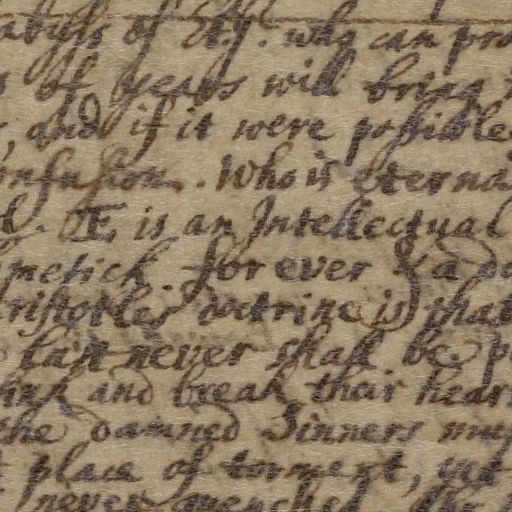 abyss of Et.y. who can pro
s of years will bring
, and if it were possible
onfusion. Who is eterna
d. Æ is an Intellectual
metick for ever & a
ristotles doctrine is that
can never shall be p
and break their hear
the damned Sinners mus
place of torment, yet
never quenched. the